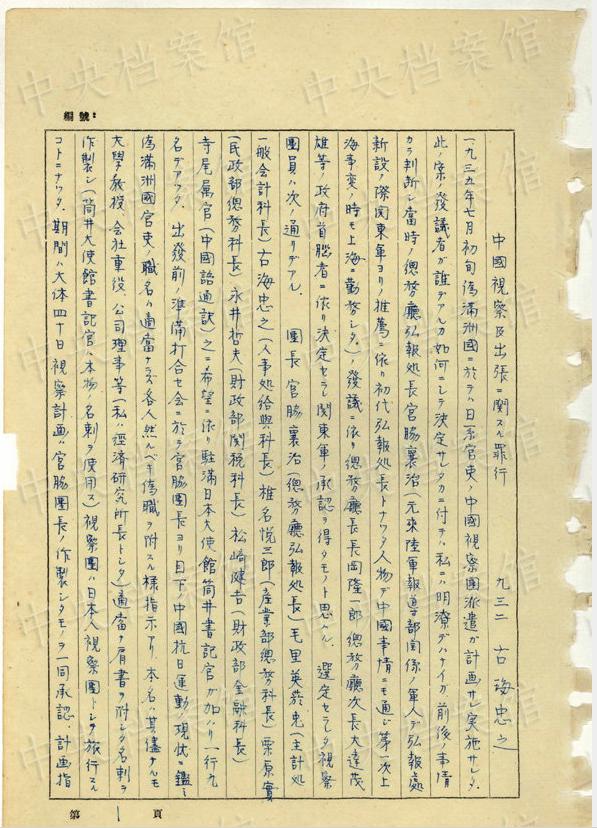 編號：
中國視察及出張ニ関スル罪行　九三二　古海忠之
一九三五年七月初旬偽滿洲國ニ於テハ日系官吏ノ中國視察團派遣ガ計画サレ実施サレタ．
此ノ案ノ発議者ガ誰デアルカ如何ニシテ決定サレタカニ付テハ私ニハ明瞭デハナイガ前後ノ事情
カラ判断シ當時ノ總務廳弘報処長宮脇襄治(元来陸軍報道部関係ノ軍人デ弘報處
新設ノ際関東軍ヨリノ推薦ニ依リ初代弘報処長トナツタ人物デ中國事情ニモ通ジ第一次上
海事変ノ時モ上海ニ勤務シタ．)ノ発議ニ依リ總務廳長長岡隆一郎總務廳次長大達茂
雄等ノ政府首腦者ニ依リ決定セラレ関東軍ノ承認ヲ得タモノト思ヘル．選定セラレタ視察
團員ハ次ノ通リデアル．　團長宮脇襄治(總務廳弘報処長)毛里英於菟(主計処
一般会計科長)古海忠之(人事処給與科長)椎名悦三郎(産業部總務科長)栗原實
(民政部總務科長)永井哲夫(財政部関税科長)松崎健吉(財政部金融科長)
寺尾属官(中國語通訳)之ニ希望ニ依リ駐滿日本大使館筒井書記官ガ加ハリ一行九
名デアツタ．出発前ノ準備打合セ会ニ於テ宮脇團長ヨリ目下中國抗日運動ノ現状ニ鑑ミ
偽滿洲國官吏ノ職名ハ適當ナラズ各人然ルベキ偽職ヲ附スル様指示アリ．本名ハ其儘ナルモ
大學教授、会社重役、公司理事等(私ハ經済研究所長トシタ)適當ナ肩書ヲ附シタ名刺ヲ
作製シ(筒井大使館書記官ハ本物ノ名刺ヲ使用ス)視察團ハ日本人視察團トシテ旅行スル
コトニナツタ．期間ハ大体四十日視察計画ハ宮脇團長ノ作製シタモノヲ一同承認．計画指
第 1 頁
中央档案馆
中央档案馆
中央档案馆
中央档案馆
中央档案馆
中央档案馆